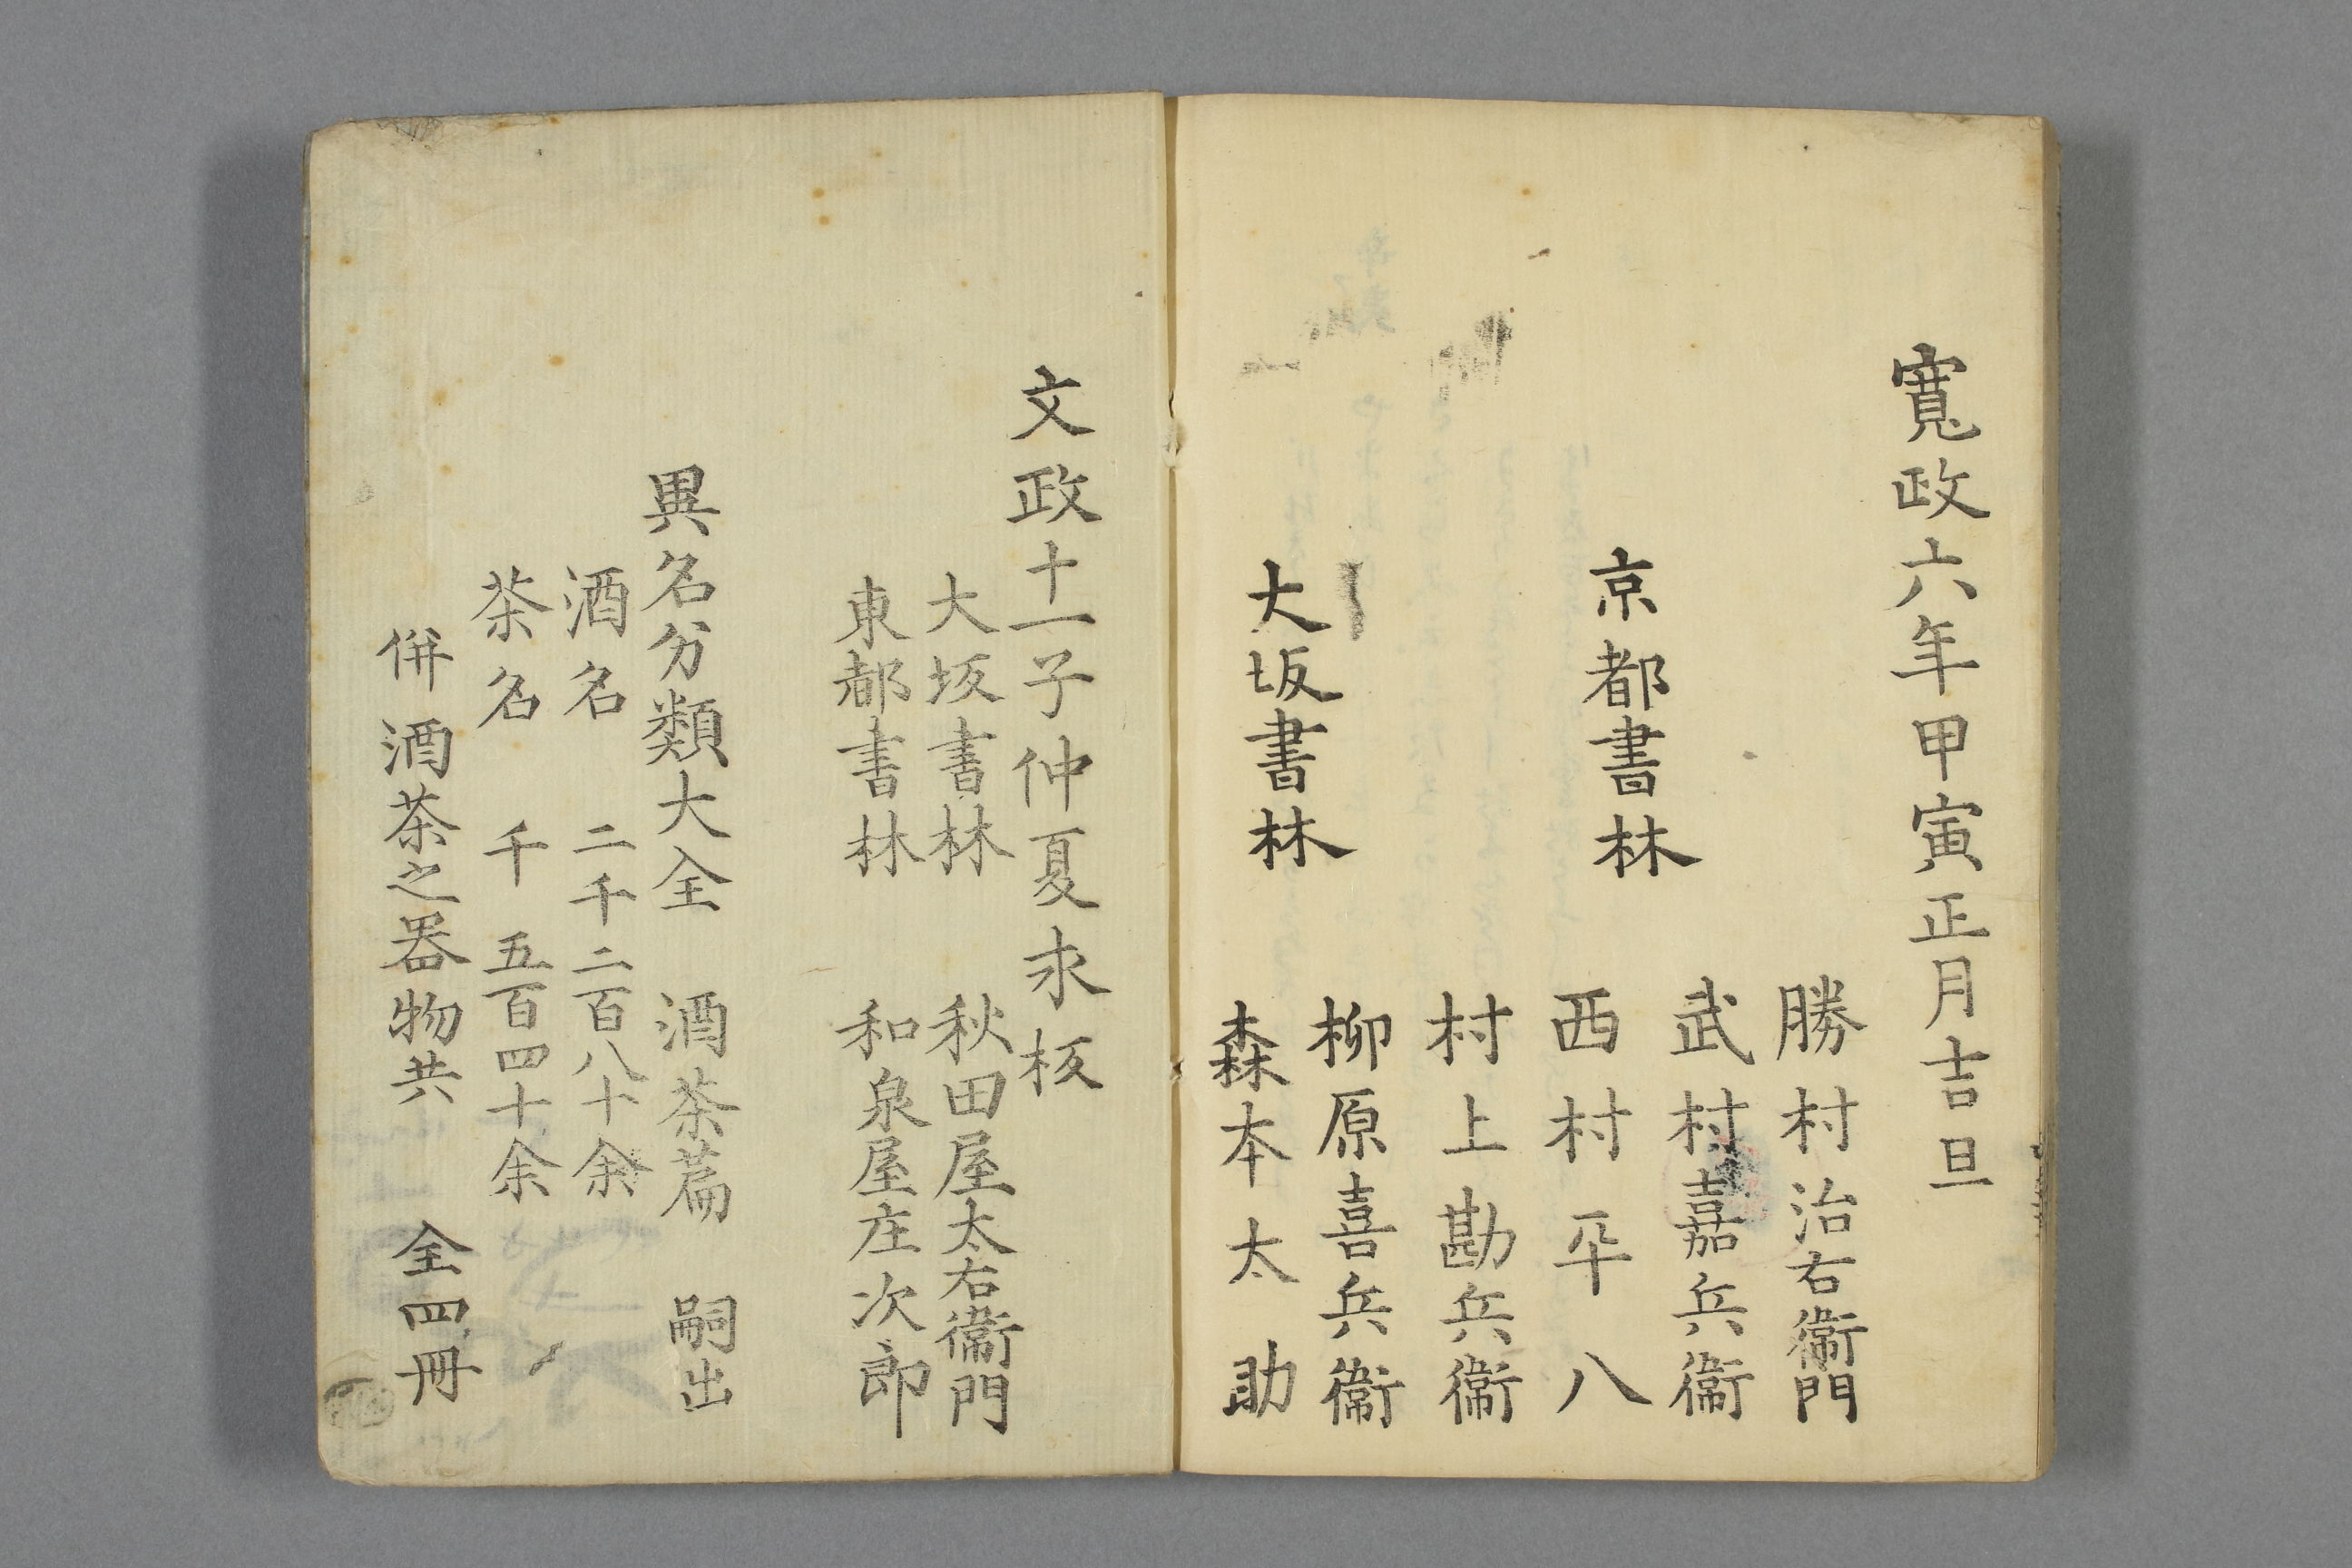 寛政六年甲寅正月吉旦
勝村治右衛門
武村嘉兵衛
京都書林
西村平八
村上勘兵衛
柳原喜兵衛
大坂書林
森本太助
文政十一子仲夏求板
大坂書林 秋田屋太右衛門
東都書林 和泉屋庄次郎
異名分類大全 酒茶篇 嗣出
酒名 二千二百八十余
茶名 千五百四十余
併酒茶之器物共 全四冊